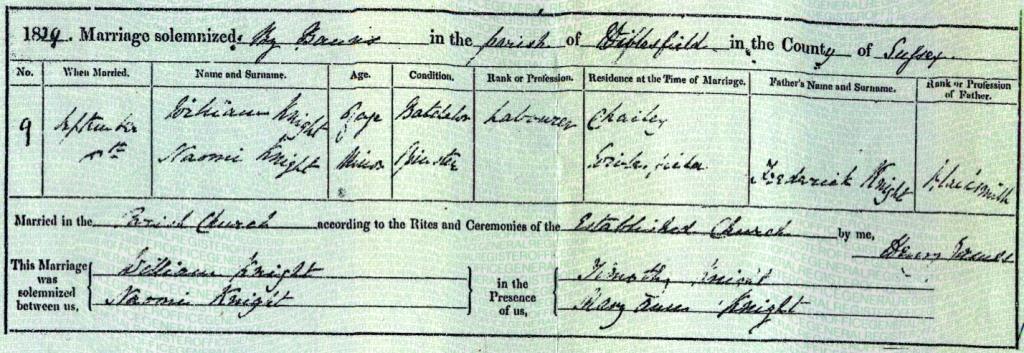 1839. Marriage solemnized By Banns in the parish of Wivelsfield in the County of Sussex.
No. When Married. Name and Surname. Age. Condition. Rank or Profession. Residence at the Time of Marriage. Father's Name and Surname. Rank or Profession of Father.
9 September William Knight of age Batchelor Labourer Chailey
Naomi Knight Minor Spinster Wivelsfield Frederick Knight Blacksmith
Married in the Parish Church according to the Rites and Ceremonies of the Established Church by me,
Henry
This Marriage was solemnized between us, William Knight in the Presence of us, Timothy Knight
Naomi Knight Mary Anne Knight